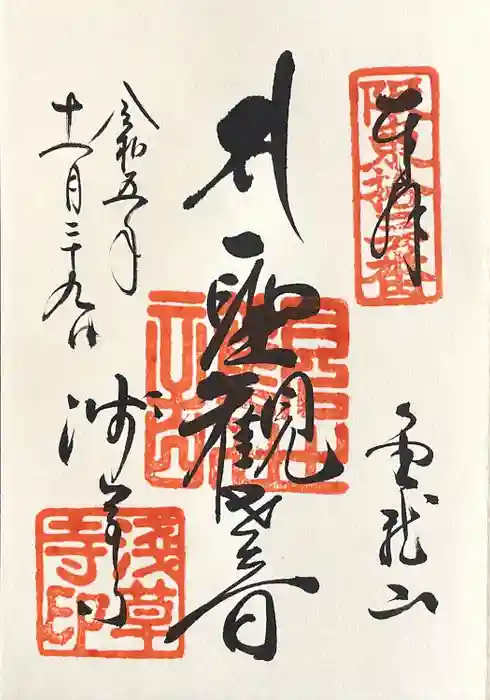 奉拝
坂東拾三番
金龍山
聖観世音
浅草寺
令和五年
十一月二十九日
浅草寺印